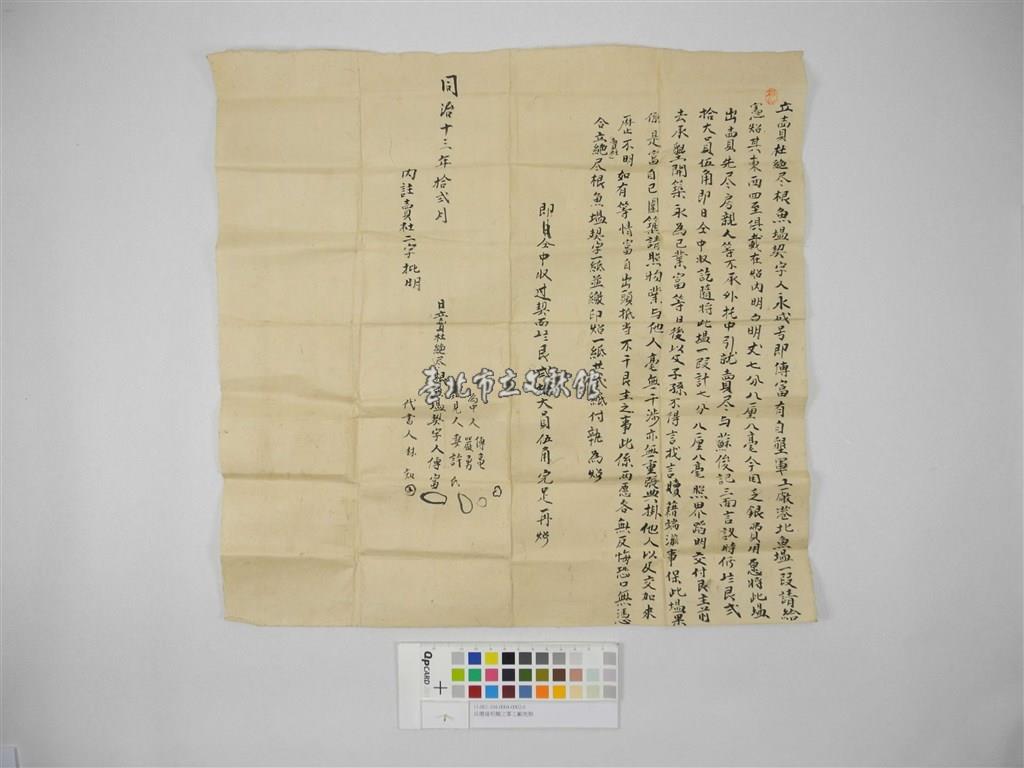 立賣杜絕尽根魚塭契字人永成号即傅富有自墾軍工廠港北魚塭一段請給
憲炤其東西四至俱載在炤內明白明丈七分八厘八毫今因乏銀費用愿將此塭
出賣先尽房親人等不承外托中引就賣尽与蘇俊記三面言議時价
拾大員伍角即日仝中收訖隨將此塭一段計七分八厘八毫照界踏明交付艮主前
去承墾開築永為己業富等日後以及子孫不得言找言贖藉端滋事保此塭果
係是富自己圍築請照物業与他人毫無干涉亦無重張典掛他人以及交加來
歷不明如有等情富自出頭抵当不干艮主之事此係两愿各無反悔恐口無憑
合立絕尽根魚塭契字一紙並繳印炤一紙共弍紙付執為炤
賣杜
即日仝中收过契面艮大員伍角完足再炤
同治十三年拾弍月
內註賣杜二字批明
日立賣杜絕尽根魚塭契字人傅富
為中人
見人妻許氏
代書人林
臺北市立文獻館
QPCARD